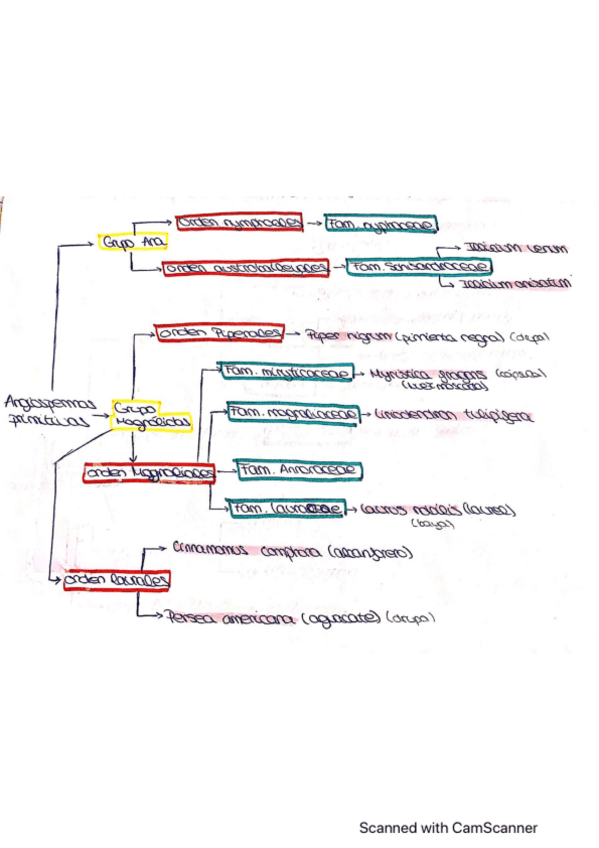 Orden nymphaeales
Fam. nyphaceae
Grupo Ana
Illicium verum
Orden austrobaileyales
Fam. Schisandraceae
Illicium anisatum
Orden Piperales
Piper nigrum (pimienta negra) (drupa)
Fam. miristicaceae
Myristica fragans (cápsula)
(nuez moscada)
Angiospermas
primitivas
Grupo
Magnólidas
Fam. magnoliaceae
Liriodendron tulipifera
Orden Magnoliales
Fam. Annonaceae
Fam. Lauraceae
Laurus nobilis (laurel)
(baya)
Cinnamomus camphora (alcanforero)
Orden laurales
Persea americana (aguacate) (drupa)
Scanned with CamScanner